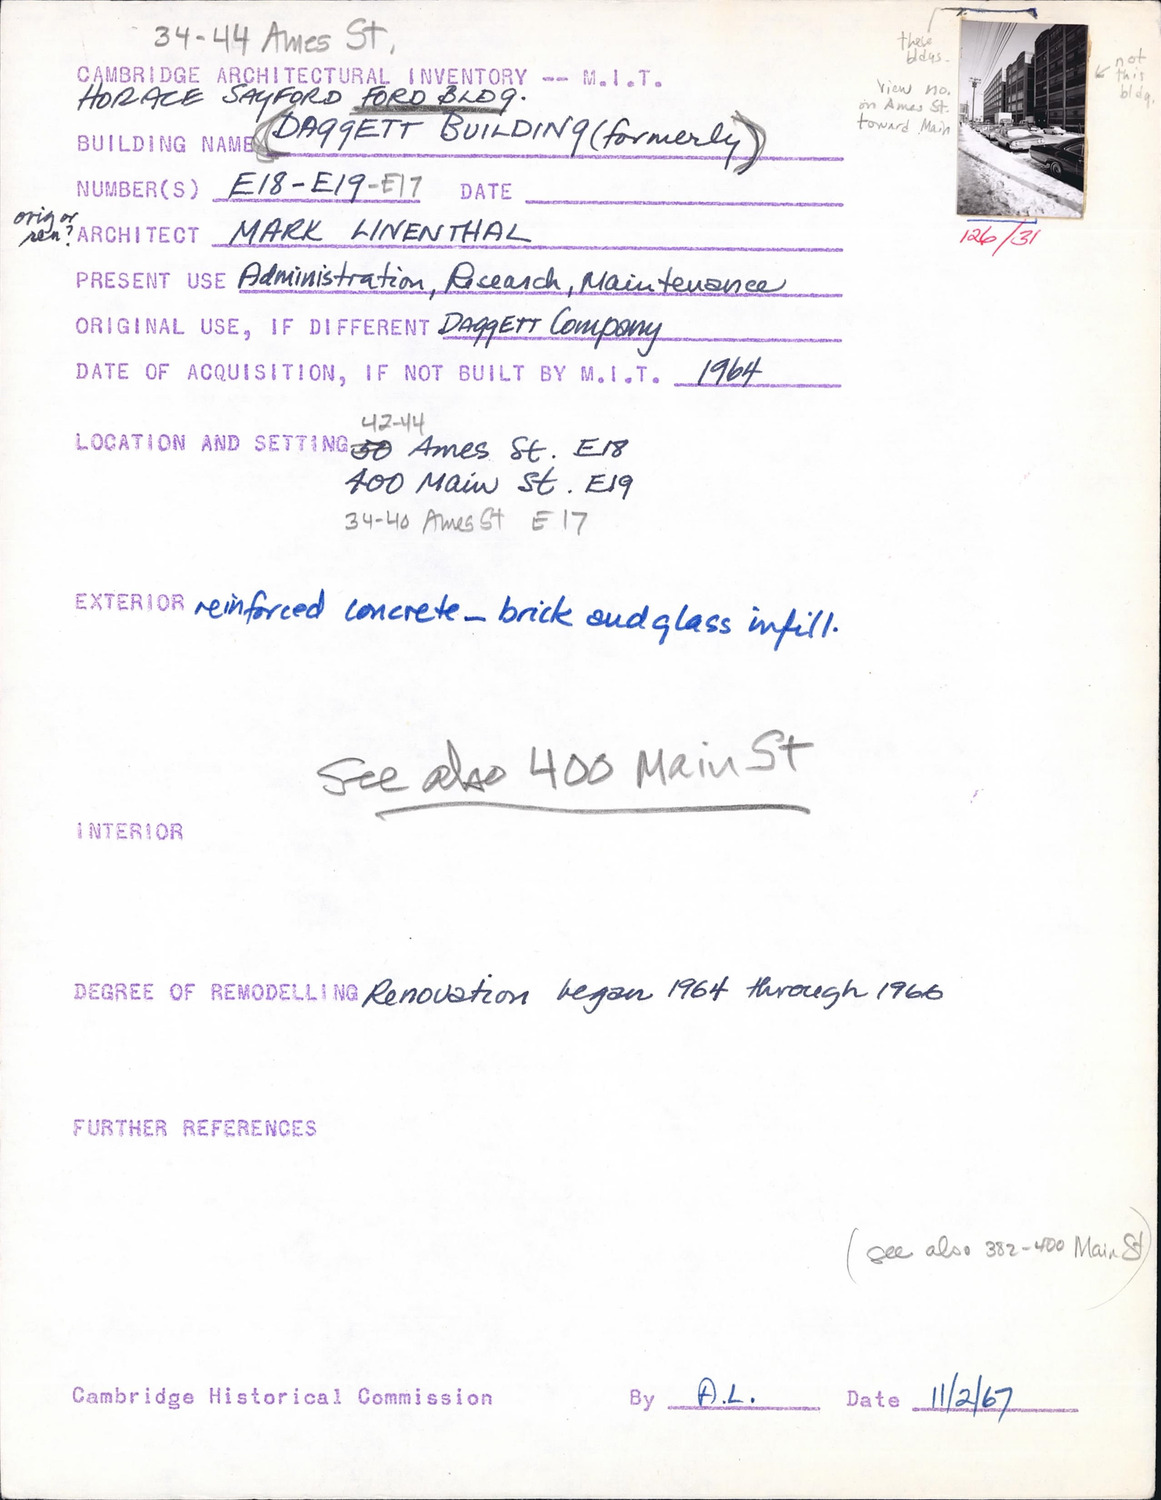 34-44 Ames St.
CAMBRIDGE ARCHITECTURAL INVENTORY -- M.I.T.
HORACE SAYFORD FORD BLDG.
BUILDING NAME (DAGGETT BUILDING (formerly))
NUMBER(S) E18-E19-E17 DATE
orig or
ren? ARCHITECT MARK LINENTHAL
PRESENT USE Administration, Research, Maintenance
ORIGINAL USE, IF DIFFERENT DAGGETT Company
DATE OF ACQUISITION, IF NOT BUILT BY M.I.T. 1964
these
bldgs.
View no.
on Ames St.
toward Main
not
this
bldg.
126/31
42-44
LOCATION AND SETTING 50 Ames St. E18
400 Main St. E19
34-40 Ames St E17
EXTERIOR reinforced concrete - brick and glass infill.
See also 400 Main St
INTERIOR
DEGREE OF REMODELLING Renovation began 1964 through 1966
FURTHER REFERENCES
(see also 382-400 Main St)
Cambridge Historical Commission By A.L. Date 11/2/67